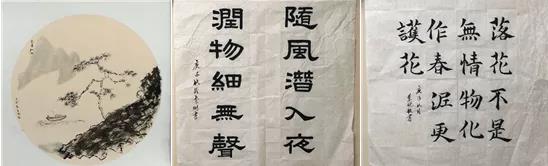 隨風潛入夜
潤物細無聲
落花不是
無情物化
作春泥更
護花